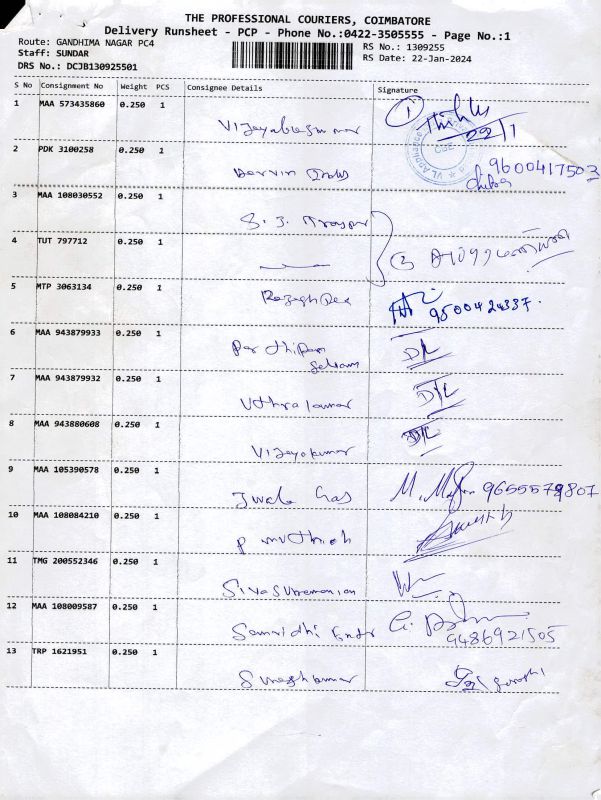 THE PROFESSIONAL COURIERS, COIMBATORE
Delivery Runsheet - PCP - Phone No.:0422-3505555 - Page No.:1
Route: GANDHIMA NAGAR PC4 RS No.: 1309255
Staff: SUNDAR RS Date: 22-Jan-2024
DRS No.: DCJB130925501
S No Consignment No Weight PCS Consignee Details Signature
1 MAA 573435860 0.250 1 Vijayabaskumar 1 22/1
2 PDK 3100258 0.250 1 9600417502
3 MAA 108030552 0.250 1 S. J.
4 TUT 797712 0.250 1 2
5 MTP 3063134 0.250 1 9500424337.
6 MAA 943879933 0.250 1 Parthipan
Selvam
7 MAA 943879932 0.250 1 Uthrakumar
8 MAA 943880608 0.250 1 Vijayakumar
9 MAA 105390578 0.250 1 Jwala Gas M. 9655579807
10 MAA 108084210 0.250 1 P Muthiah
11 TMG 200552346 0.250 1 Sivasubramanian
12 MAA 108009587 0.250 1 Samridhi Entr G.
9486921505
13 TRP 1621951 0.250 1 Sureshkumar